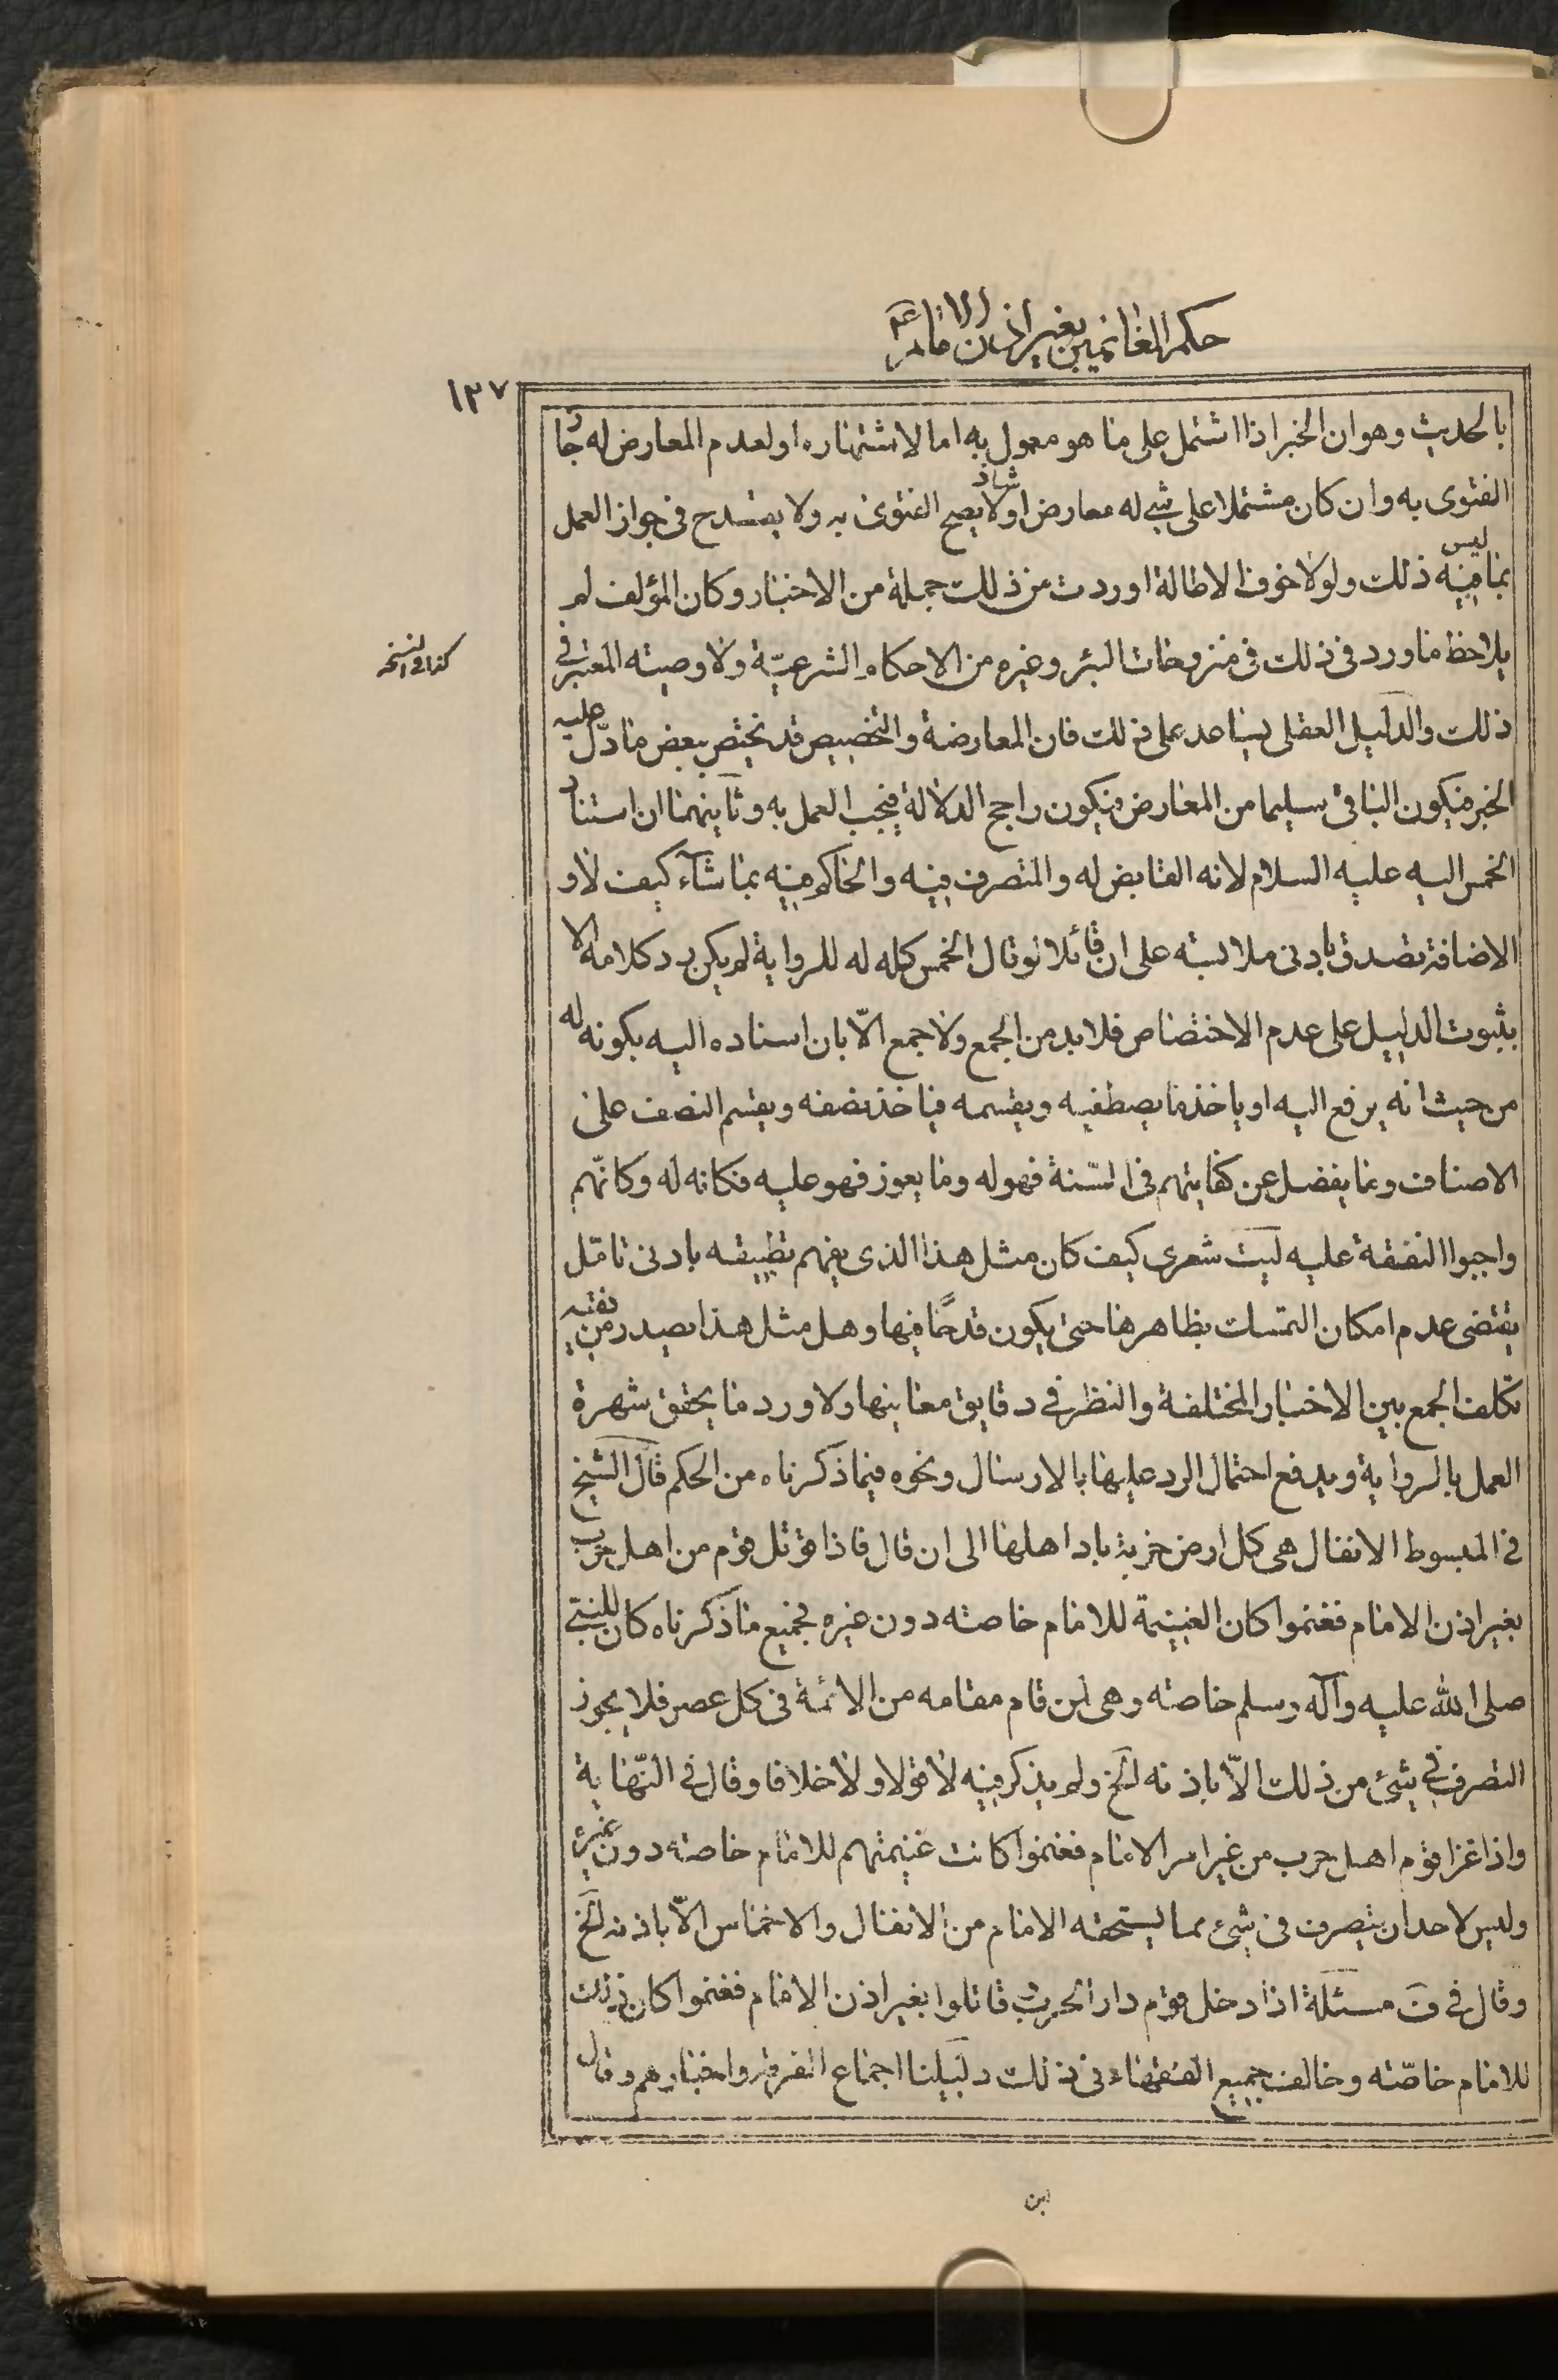 حكم الغانمين بغير اذن الامام ع
١٣٧
بالحديث وهو ان الخبر اذا اشتمل على ما هو معمول به اما لاشتهاره او لعدم المعارض له جاز
الفتوى به وان كان مشتملا على شئ له معارض او شاذ لا يصح الفتوى به ولا يقدح فى جواز العمل
بما ليس فيه ذلك ولولا خوف الاطالة اوردت من ذلك جملة من الاخبار وكان المؤلف لم
يلاحظ ما ورد فى ذلك فى منزوحات البئر وغيره من الاحكام الشرعيّة ولا وصيته المعتبر فى
كذا فى النسخه
ذلك والدليل العقلى يساعد على ذلك فان المعارضة والتخصيص قد يختص ببعض ما دلّ عليه
الخبر فيكون الباقى سليما من المعارض فيكون راجح الدلالة فيجب العمل به وثانيهما ان استناد
الخمس اليه عليه السلام لانه القابض له والمتصرف فيه والحاكم فيه بما شآء كيف لا و
الاضافة تصدق بادنى ملابسته على ان قائلا لو قال الخمس كله له للرواية لم يكن رد كلامه الا
بثبوت الدليل على عدم الاختصاص فلا بد من الجمع ولا جمع الّا بان اسناده اليه بكونه له
من حيث انه يرفع اليه او ياخذ ما يصطفيه ويقسمه فياخذ نصفه ويقسم النصف على
الاصناف وما يفضل عن كفايتهم فى السّنة فهو له وما يعوز فهو عليه فكانه له وكانّهم
واجبوا النفقة عليه ليت شعرى كيف كان مثل هذا الذى يفهم تطبيقه بادنى تامّل
يقتضى عدم امكان التمسك بظاهرها حتى يكون قدحًا فيها وهل مثل هذا يصدر من فقيه
تكلف الجمع بين الاخبار المختلفة والنظر فى دقايق معانيها ولا ورد ما يحقق شهرة
العمل بالرواية ويدفع احتمال الرد عليها بالارسال ونحوه فيما ذكرناه من الحكم قال الشيخ
فى المبسوط الانفال هى كل ارض خربة باد اهلها الى ان قال فاذا قوتل قوم من اهل حرب
بغير اذن الامام فغنموا كان الغنيمة للامام خاصته دون غيره فجميع ما ذكرناه كان للنبىّ
صلى الله عليه وآله وسلم خاصته وهى لمن قام مقامه من الائمة فى كل عصر فلا يجوز
التصرف فى شئ من ذلك الّا باذنه الخ ولم يذكر فيه لا قولا ولا خلافا وقال فى النّهاية
واذا غزا قوم اهل حرب من غير امر الامام فغنموا كانت غنيمتهم للامام خاصته دون غيره
وليس لاحد ان يتصرف فى شئ مما يستحقه الامام من الانفال والاخماس الّا باذنه الخ
وقال فى ف مسئلة اذا دخل قوم دار الحرب قاتلوا بغير اذن الامام فغنموا كان ذلك
للامام خاصّته وخالف جميع الفقهاء فى ذلك دليلنا اجماع الفرقة واخبارهم وقال
ابن